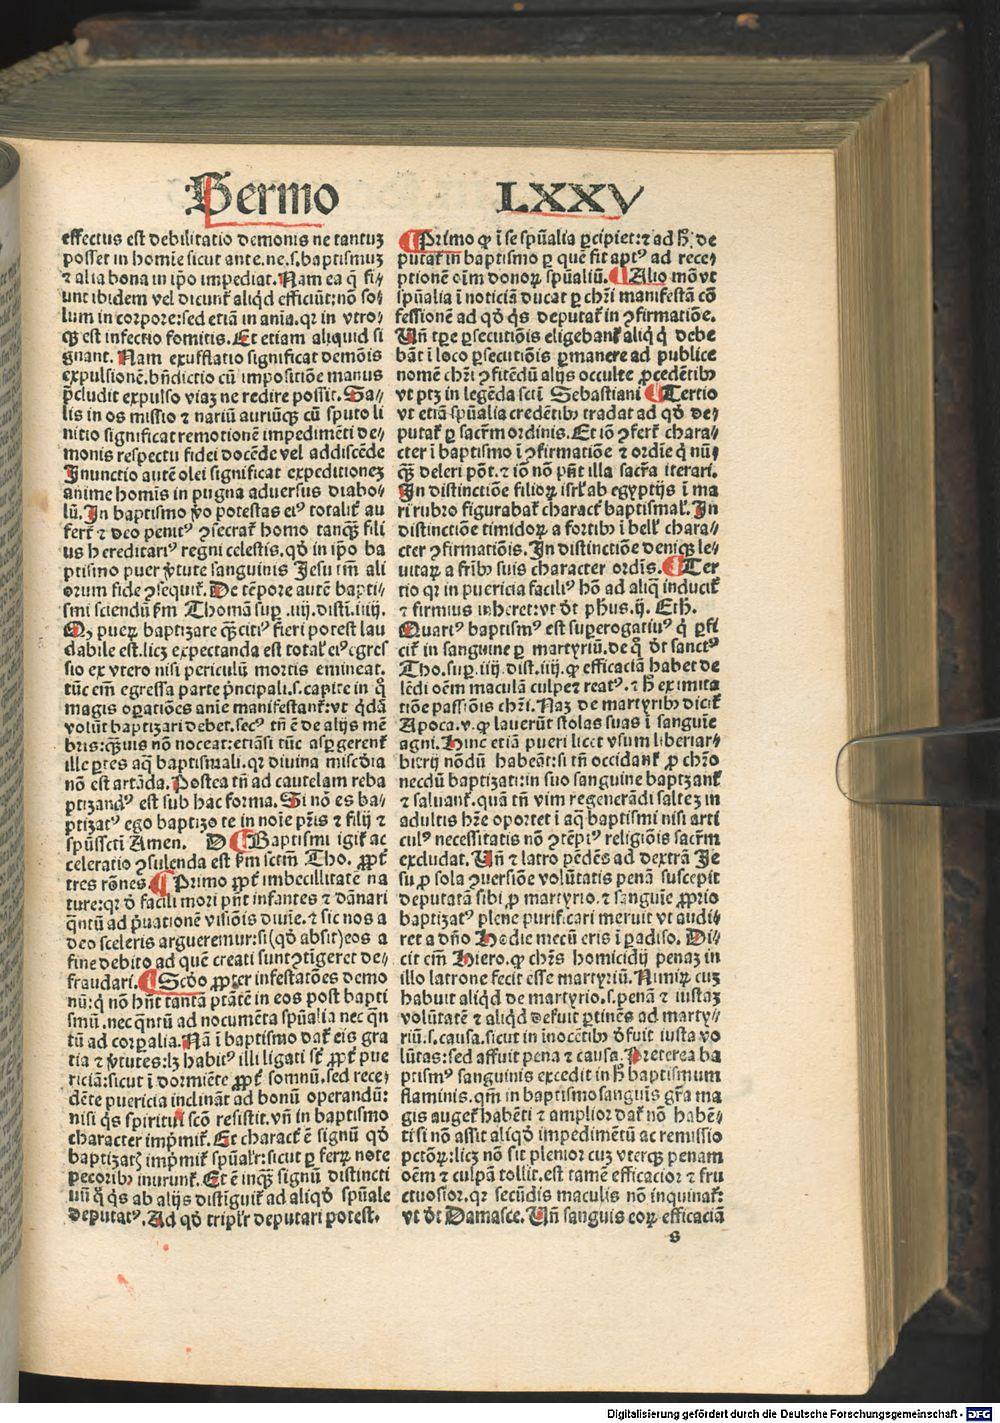 Sermo LXXV
effectus est debilitatio demonis ne tantuʒ
posset in homīe sicut ante.ne.s.baptismuʒ
⁊ alia bona in ip̄o impediat. Nam ea q̄ fi⸗
unt ibidem vel dicunt̃ aliqd efficiūt:nō so⸗
lum in corpore:sed etiā in anīa.qr in vtro⸗
q̢ est infectio fomitis. Et etiam aliquid si
gnant. Nam exufflatio significat demōis
expulsionē.bn̄dictio cū impositiōe manus
p̄cludit expulso viaʒ ne redire possit. Sa⸗
lis in os missio ⁊ nariū auriūq̢ cū sputo li
nitio significat remotionē impedimēti de⸗
monis respectu fidei docēde vel addiscēde
Inunctio autē olei significat expeditioneʒ
anime homīs in pugna aduersus diabo⸗
lū. In baptismo v̄o potestas ei⁹ totalit̃ au
fert̃ ⁊ deo penit⁹ ꝯsecrat̃ homo tanq̢̄ fili
us hereditari⁹ regni celestis.qō in ip̄o ba
ptismo puer v̄tute sanguinis Jesu tm̄ ali
orum fide ꝯsequit̃. De tēpore autē bapti⸗
smi sciendū s̄m Thomā sup .iiij.distī.iiij.
Qꝫ pueꝝ baptizare q̢̄citi⁹ fieri potest lau
dabile est.licʒ expectanda est total̃ ei⁹ egres
sio ex vtero nisi periculū mortis emineat.
tūc em̄ egressa parte p̄ncipali.s.capite in q̄
magis oꝑatiōes anīe manifestant̃:vt q̄dā
volūt baptizari debet.sec⁹ tn̄ ē de alijs mē
bris:q̢̄uis nō noceat:etiāsi tūc aspgerent̃
ille ꝑtes aq̄ baptismali.qr diuina miscd̄ia
nō est artāda. Postea tn̄ ad cautelam reba
ptizand⁹ est sub hac forma. Si nō es ba⸗
ptizat⁹ ego baptizo te in noīe pr̄is ⁊ filij ⁊
spūssctī Amen. D ¶ Baptismi igit̃ ac
celeratio ꝯsulenda est s̄m sctm̄ Tho. ꝓpt̃
tres rōnes. ¶ Primo ꝓpt̃ imbecillitatē na
ture:qr d̄ facili mori pn̄t infantes ⁊ dānari
q̄ntū ad p̄uationē visiōis diuīe.⁊ sic nos a
deo sceleris argueremur:si(qō absit)eos a
fine debito ad quē creati sunt ꝯtigeret de⸗
fraudari. ¶ Scd̄o ꝓpter infestatōes demo
nū:q̄ nō hn̄t tantā ptātē in eos post bapti
smū.nec q̄ntū ad nocumēta spūalia nec q̄n
tū ad corꝑalia. Nā ī baptismo dat̃ eis gra
tia ⁊ v̄tutes:lʒ habit⁹ illi ligati st̄ ꝓpt̃ pue
riciā:sicut ī dormiēte ꝓpt̃ somnū.sed rece⸗
dēte puericia inclināt ad bonū operandū:
nisi q̄s spiritui scō resistit.vn̄ in baptismo
character imp̄mit̃. Et charact̃ ē signū qō
baptizatꝫ imp̄mit̃ spūalr̄:sicut ꝑ ferꝝ note
pecoribꝫ inurunt̃. Et ē inq̢̄ signū distincti
uū q̄ q̄s ab alijs distīguit̃ ad aliqō spūale
deputat⁹. Ad qō tripl̄r deputari potest.
¶ Primo ꝙ ī se spūalia ꝑcipiet:⁊ ad h̄ de
putat̃ in baptismo ꝑ quē fit apt⁹ ad rece⸗
ptionē oīm donoꝝ spūaliū. ¶ Alio mō vt
spūalia ī noticiā ducat ꝑ chr̄i manifestā cō
fessionē ad qō q̄s deputat̃ in ꝯfirmatiōe.
Un̄ tꝑe ꝑsecutiōis eligebant̃ aliq̄ q̄ debe
bāt ī loco ꝑsecutiōis ꝑmanere ad publice
nomē chr̄i ꝯfitēdū alijs occulte ꝓcedētibꝫ
vt ptʒ in legēda sctī Sebastiani ¶ Tertio
vt etiā spūalia credētibꝫ tradat ad qō de⸗
putat̃ ꝑ sacr̄m ordinis. Et iō ꝯfert̃ chara⸗
cter ī baptismo ī ꝯfirmatiōe ⁊ ordīe q̄ nū⸗
q̢̄ deleri pōt.⁊ iō nō pn̄t illa sacr̄a iterari.
In distinctiōe filioꝝ isrl̄ ab egyptijs ī ma
ri rubro figurabat̃ charact̃ baptismal̃. In
distinctiōe timidoꝝ a fortibꝫ ī bell̃ chara⸗
cter ꝯfirmatiōis. In distinctiōe deniq̢ le⸗
uitaꝝ a fr̄ibꝫ suis character ordīs. ¶ Ter
tio qr in puericia facili⁹ hō ad aliq̄ inducit̃
⁊ firmius inheret:vt dt̄ ph̄us.ij. Eth.
Quart⁹ baptism⁹ est superogatiu⁹ q̄ ꝑfi
cit̃ in sanguine ꝑ martyriū.de q̄ dt̄ sanct⁹
Tho.sup.iiij.dist.iiij.ꝙ efficaciā habet de
lēdi oēm maculā culpe ⁊ reat⁹.⁊ h̄ ex imita
tiōe passiōis chr̄i. Naʒ de martyribꝫ dicit̃
Apoca.v.ꝙ lauerūt stolas suas ī sanguīe
agni. Hinc etiā pueri licet vsum liberiar⸗
bitrij nōdū habeāt:si tn̄ occidant̃ ꝓ chr̄o
necdū baptizati:in suo sanguine baptʒant̃
⁊ saluant̃.quā tn̄ vim regenerādi salteʒ in
adultis hr̄e oportet ī aq̄ baptismi nisi arti
cul⁹ necessitatis nō ꝯtēpt⁹ religiōis sacr̄m
excludat. Un̄ ⁊ latro pēdēs ad dextrā Je
su ꝓ sola ꝯuersiōe volūtatis penā suscepit
deputatā sibi ꝓ martyrio.⁊ sanguīe ꝓprio
baptizat⁹ plene purificari meruit vt audi⸗
ret a dn̄o Hodie mecū eris ī padiso. Di⸗
cit em̄ Hiero.ꝙ chr̄s homicidij penaʒ in
illo latrone fecit esse martyriū. Nimiꝝ cuʒ
habuit aliqd de martyrio.s.penā ⁊ iustaʒ
volūtatē ⁊ aliqd defuit ꝑtinēs ad marty⸗
riū.s.causa.sicut in inocētibꝫ d̄fuit iusta vo
lūtas:sed affuit pena ⁊ causa. Preterea ba
ptism⁹ sanguinis excedit in h̄ baptismum
flaminis.qm̄ in baptismo sanguīs gr̄a ma
gis auget̃ habēti ⁊ amplior dat̃ nō habē⸗
ti si nō assit aliqō impedimētū ac remissio
pctōꝝ:licʒ nō sit plenior cuʒ vterq̢ penam
oēm ⁊ culpā tollit.est tamē efficacior ⁊ fru
ctuosior.qr secūdis maculis nō inquinat̃:
vt dt̄ Damasce. Un̄ sanguis eoꝝ efficaciā
s
Digitalisierung gefördert durch die Deutsche Forschungsgemeinschaft - DFG